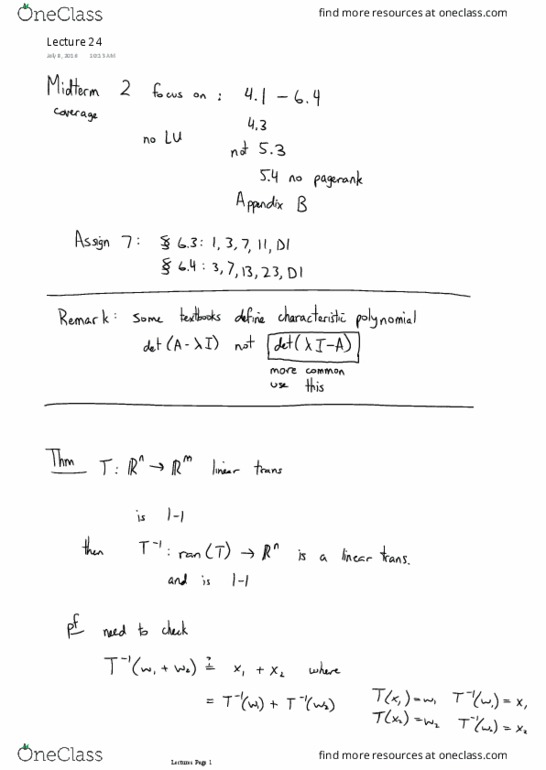 OneClass
find more resources at oneclass.com
Lecture 24
July 8, 2014
Midterm 2 focus on : 4.1 – 6.4
coverage
4.3
no LU
not 5.3
5.4 no pagerank
Appendix B
Assign 7: § 6.3 : 1, 3, 7, 11, D1
§ 6.4 : 3, 7, 13, 23, D1
Remark: some textbooks define characteristic polynomial
det(A-λI) not det(λI-A)
more common
use this
Thm T: ℝⁿ → ℝᵐ linear trans
is 1-1
then T⁻¹: ran(T) → ℝⁿ is a linear trans.
and is 1-1
pf need to check
T⁻¹(w₁ + w₂) ≟ x₁ + x₂ where
= T⁻¹(w₁) + T⁻¹(w₂)
T(x₁) = w₁ T⁻¹(w₁) = x₁
T(x₂) = w₂ T⁻¹(w₂) = x₂
Lectures Page 1
OneClass
find more resources at oneclass.com